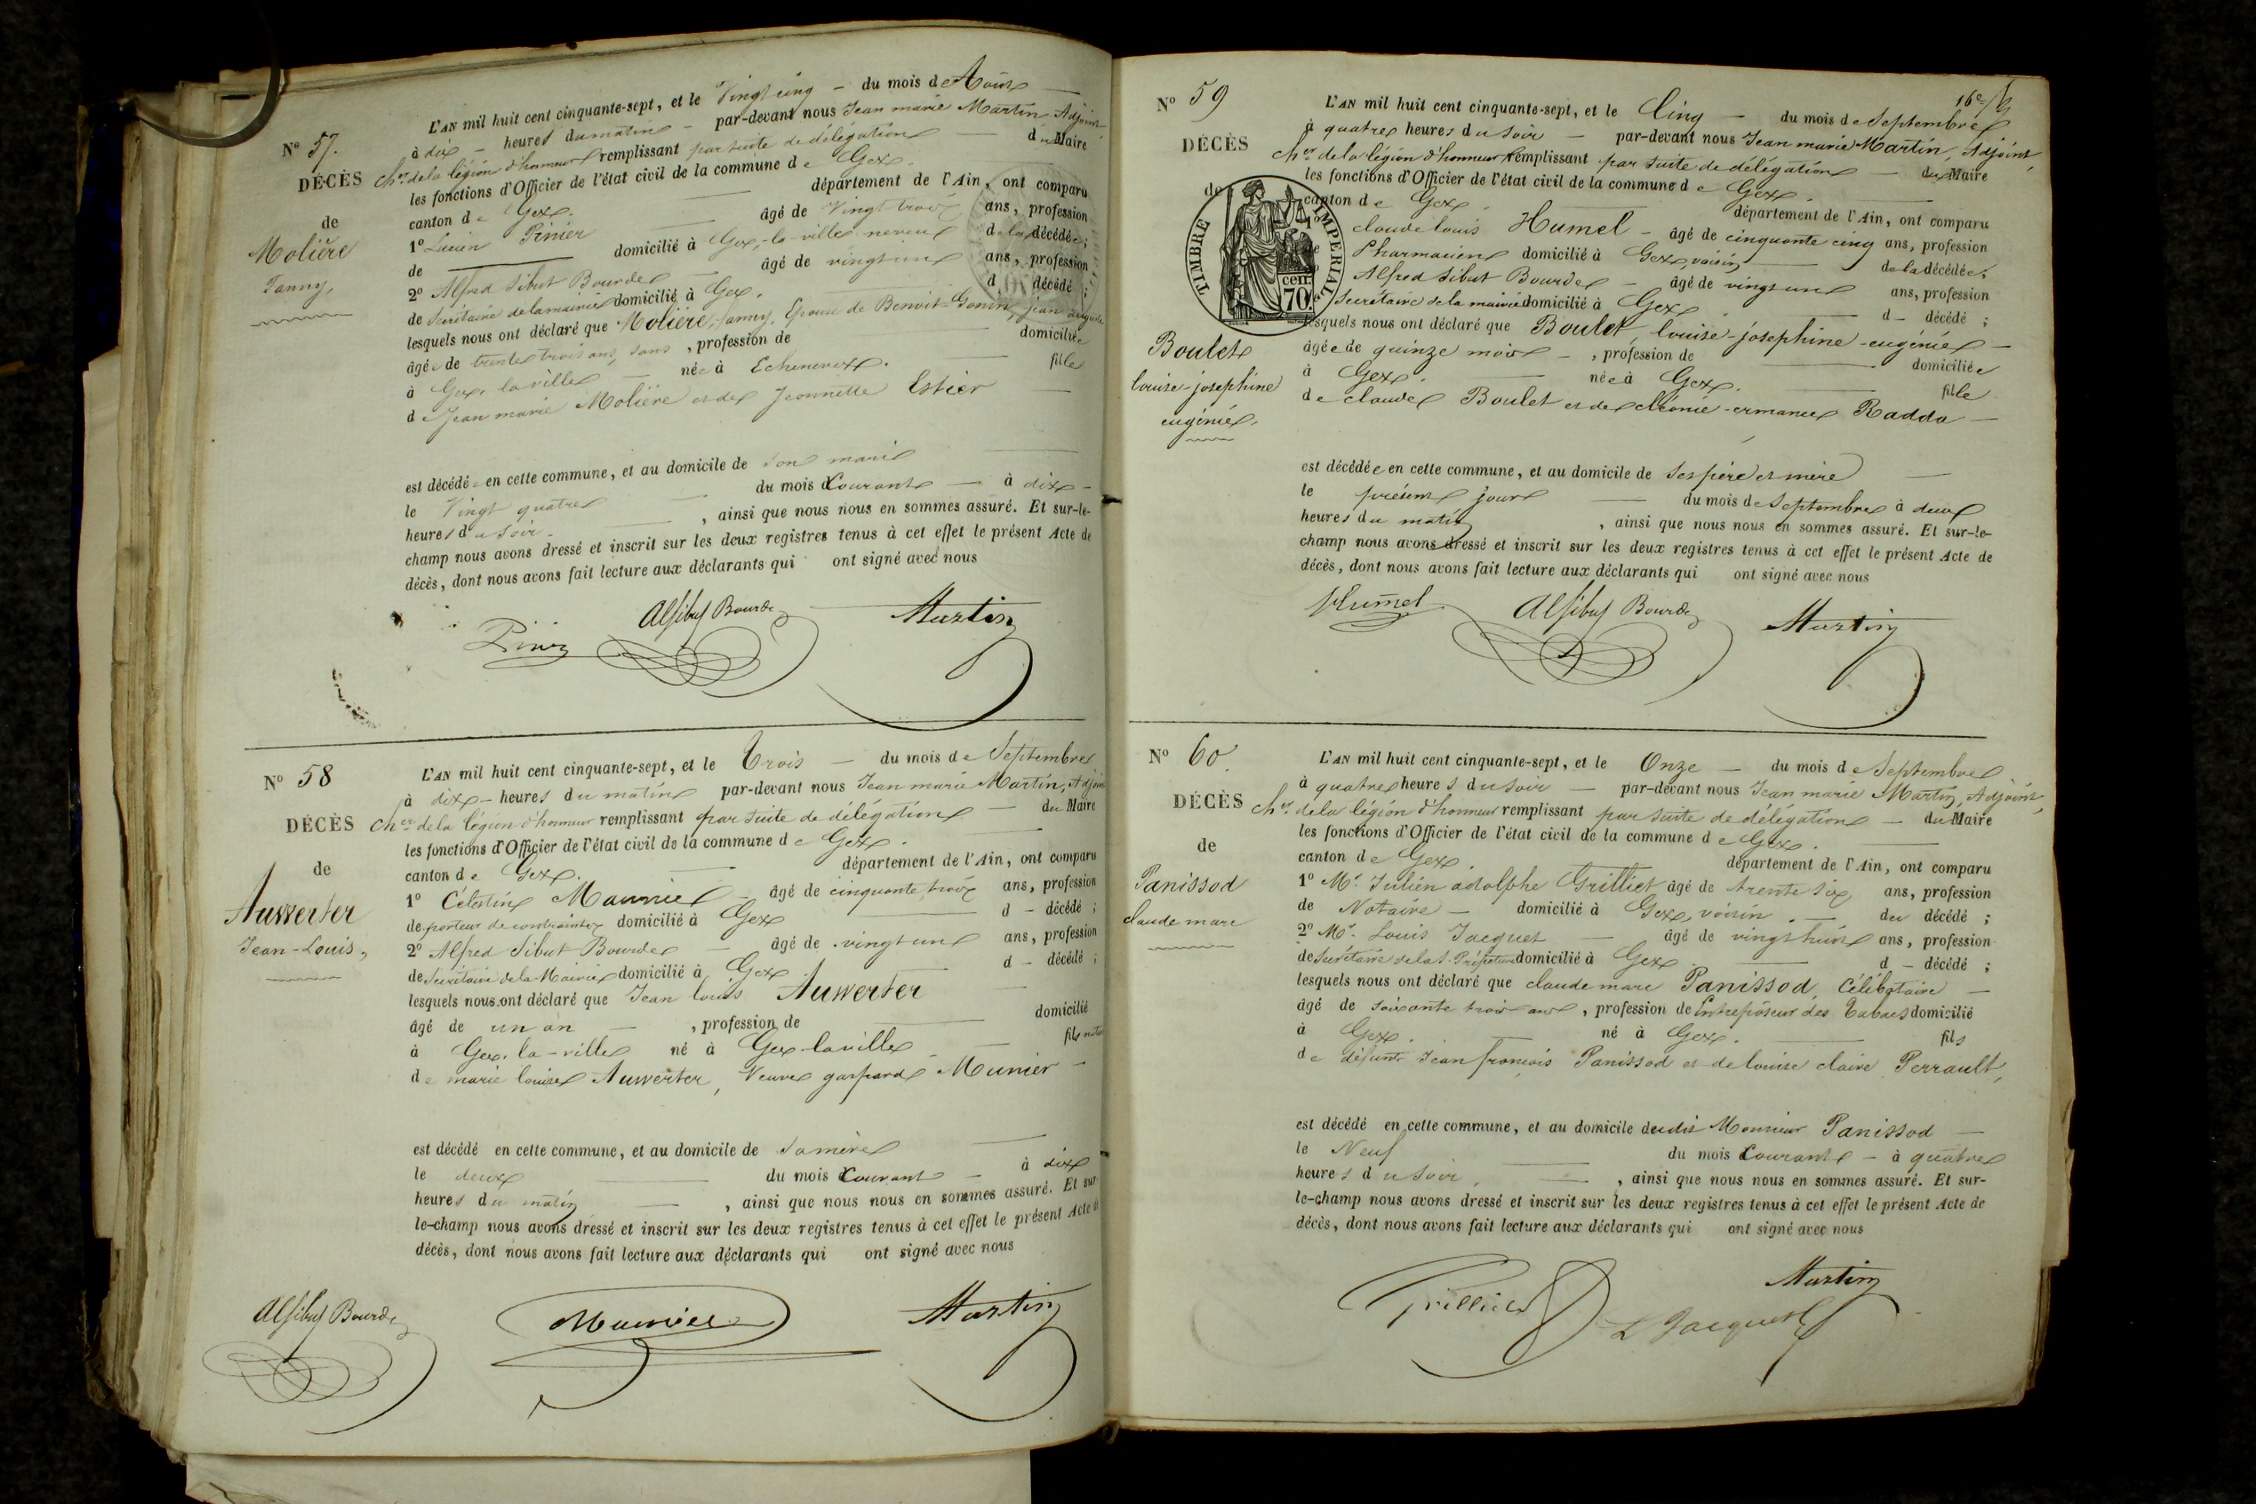 N° 57.
DÉCÈS
de
Molière
Fanny,
L'AN mil huit cent cinquante-sept, et le Vingt cinq — du mois de Août —
à dix — heures du matin — par-devant nous Jean marie Martin, Adjoint
Chr. de la légion d'honneur remplissant par suite de délégation — du Maire
les fonctions d'Officier de l'état civil de la commune de Gex.
canton de Gex. — département de l'Ain, ont comparu
1° Lucien Pinier — âgé de Vingt trois ans, profession
de — domicilié à Gex-la-ville neveu de la décédée;
2° Alfred Sibut Bourde — âgé de vingt un ans, profession
de Secrétaire de la mairie domicilié à Gex. d décédé;
lesquels nous ont déclaré que Molière, fanny, Epouse de Benoit-Gonin, jean auguste
âgée de trente trois ans, sans, profession de domiciliée
à Gex, la ville — née à Echenevex. — fille
de Jean marie Molière et de Jeannette Estier —
est décédée en cette commune, et au domicile de son mari —
le Vingt quatre — du mois Courant — à dix —
heures du soir. — , ainsi que nous nous en sommes assuré. Et sur-le-
champ nous avons dressé et inscrit sur les deux registres tenus à cet effet le présent Acte de
décès, dont nous avons fait lecture aux déclarants qui ont signé avec nous
Pinier Alf Sibut Bourde Martin
N° 58
DÉCÈS
de
Auwerter
Jean-Louis,
L'AN mil huit cent cinquante-sept, et le Trois — du mois de Septembre
à dix — heures du matin par-devant nous Jean marie Martin, Adjoint
Chr. de la légion d'honneur remplissant par suite de délégation — du Maire
les fonctions d'Officier de l'état civil de la commune de Gex.
canton de Gex. — département de l'Ain, ont comparu
1° Célestin Meunier — âgé de cinquante trois ans, profession
de porteur de contraintes domicilié à Gex — d — décédé;
2° Alfred Sibut Bourde — âgé de vingt un ans, profession
de Secrétaire de la Mairie domicilié à Gex — d — décédé;
lesquels nous ont déclaré que Jean louis Auwerter —
âgé de un an — , profession de — domicilié
à Gex, la-ville né à Gex-la ville — fils
de marie louise Auwerter, Veuve gaspard Munier —
est décédé en cette commune, et au domicile de sa mère —
le deux — du mois Courant — à dix
heures du matin — , ainsi que nous nous en sommes assuré. Et sur
le-champ nous avons dressé et inscrit sur les deux registres tenus à cet effet le présent Acte de
décès, dont nous avons fait lecture aux déclarants qui ont signé avec nous
Alf Sibut Bourde Meunier Martin
16e
N° 59
DÉCÈS
de
TIMBRE IMPERIAL
70 cen.
Boulet
louise-josephine
eugénie,
L'AN mil huit cent cinquante-sept, et le Cinq — du mois de Septembre
à quatre heures du soir — par-devant nous Jean marie Martin, Adjoint,
Chr. de la légion d'honneur remplissant par suite de délégation — du Maire
les fonctions d'Officier de l'état civil de la commune de Gex.
canton de Gex. — département de l'Ain, ont comparu
1° claude louis Humel — âgé de cinquante cinq ans, profession
de Pharmacien domicilié à Gex, voisin — de la décédée;
2° Alfred Sibut Bourde — âgé de vingt un ans, profession
de Secrétaire de la mairie domicilié à Gex. — d — décédé;
lesquels nous ont déclaré que Boulet, louise-josephine-eugénie —
âgée de quinze mois — , profession de — domiciliée
à Gex. — née à Gex. — fille
de claude Boulet et de cléonie-ermance Radda —
est décédée en cette commune, et au domicile de ses père et mère —
le présent jour — du mois de Septembre à deux
heures du matin , ainsi que nous nous en sommes assuré. Et sur-le-
champ nous avons dressé et inscrit sur les deux registres tenus à cet effet le présent Acte de
décès, dont nous avons fait lecture aux déclarants qui ont signé avec nous
Humel Alf Sibut Bourde Martin
N° 60.
DÉCÈS
de
Panissod
claude marc
L'AN mil huit cent cinquante-sept, et le Onze — du mois de Septembre
à quatre heures du soir — par-devant nous Jean marie Martin, Adjoint,
Chr. de la légion d'honneur remplissant par suite de délégation — du Maire
les fonctions d'Officier de l'état civil de la commune de Gex.
canton de Gex. département de l'Ain, ont comparu
1° Mr. Julien adolphe Grilliet âgé de trente six ans, profession
de Notaire — domicilié à Gex, voisin. — du décédé;
2° Mr. Louis Jacquet — âgé de vingt huit ans, profession
de Secrétaire de la S. Préfecture domicilié à Gex — d — décédé;
lesquels nous ont déclaré que claude marc Panissod, Célibataire —
âgé de soixante trois ans, profession de Entreposeur des Tabacs domicilié
à Gex. — né à Gex. — fils
de défunts Jean françois Panissod et de louise claire Perrault,
est décédé en cette commune, et au domicile du dit Monsieur Panissod —
le Neuf — du mois Courant — à quatre
heures du soir. — , ainsi que nous nous en sommes assuré. Et sur-
le-champ nous avons dressé et inscrit sur les deux registres tenus à cet effet le présent Acte de
décès, dont nous avons fait lecture aux déclarants qui ont signé avec nous
Grilliet L Jacquet Martin